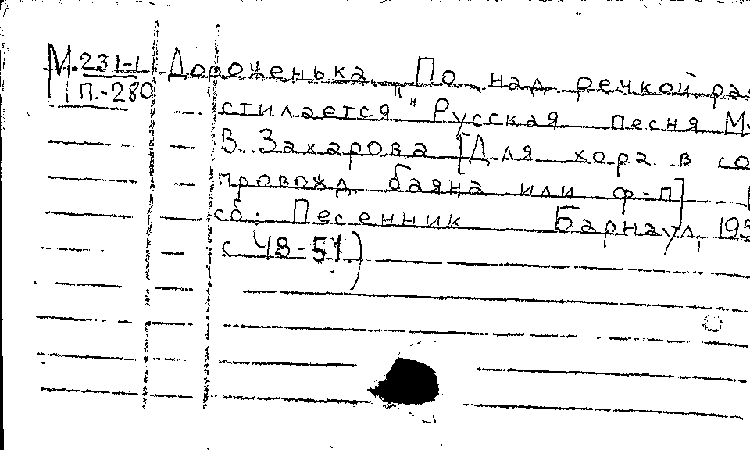 М.231-1 Дороженька „По над речкой рас
П.-280 стилается" Русская песня М.
В. Захарова [Для хора в со
провожд баяна или ф-п]
сб: Песенник Барнаул, 195
с 48-51)